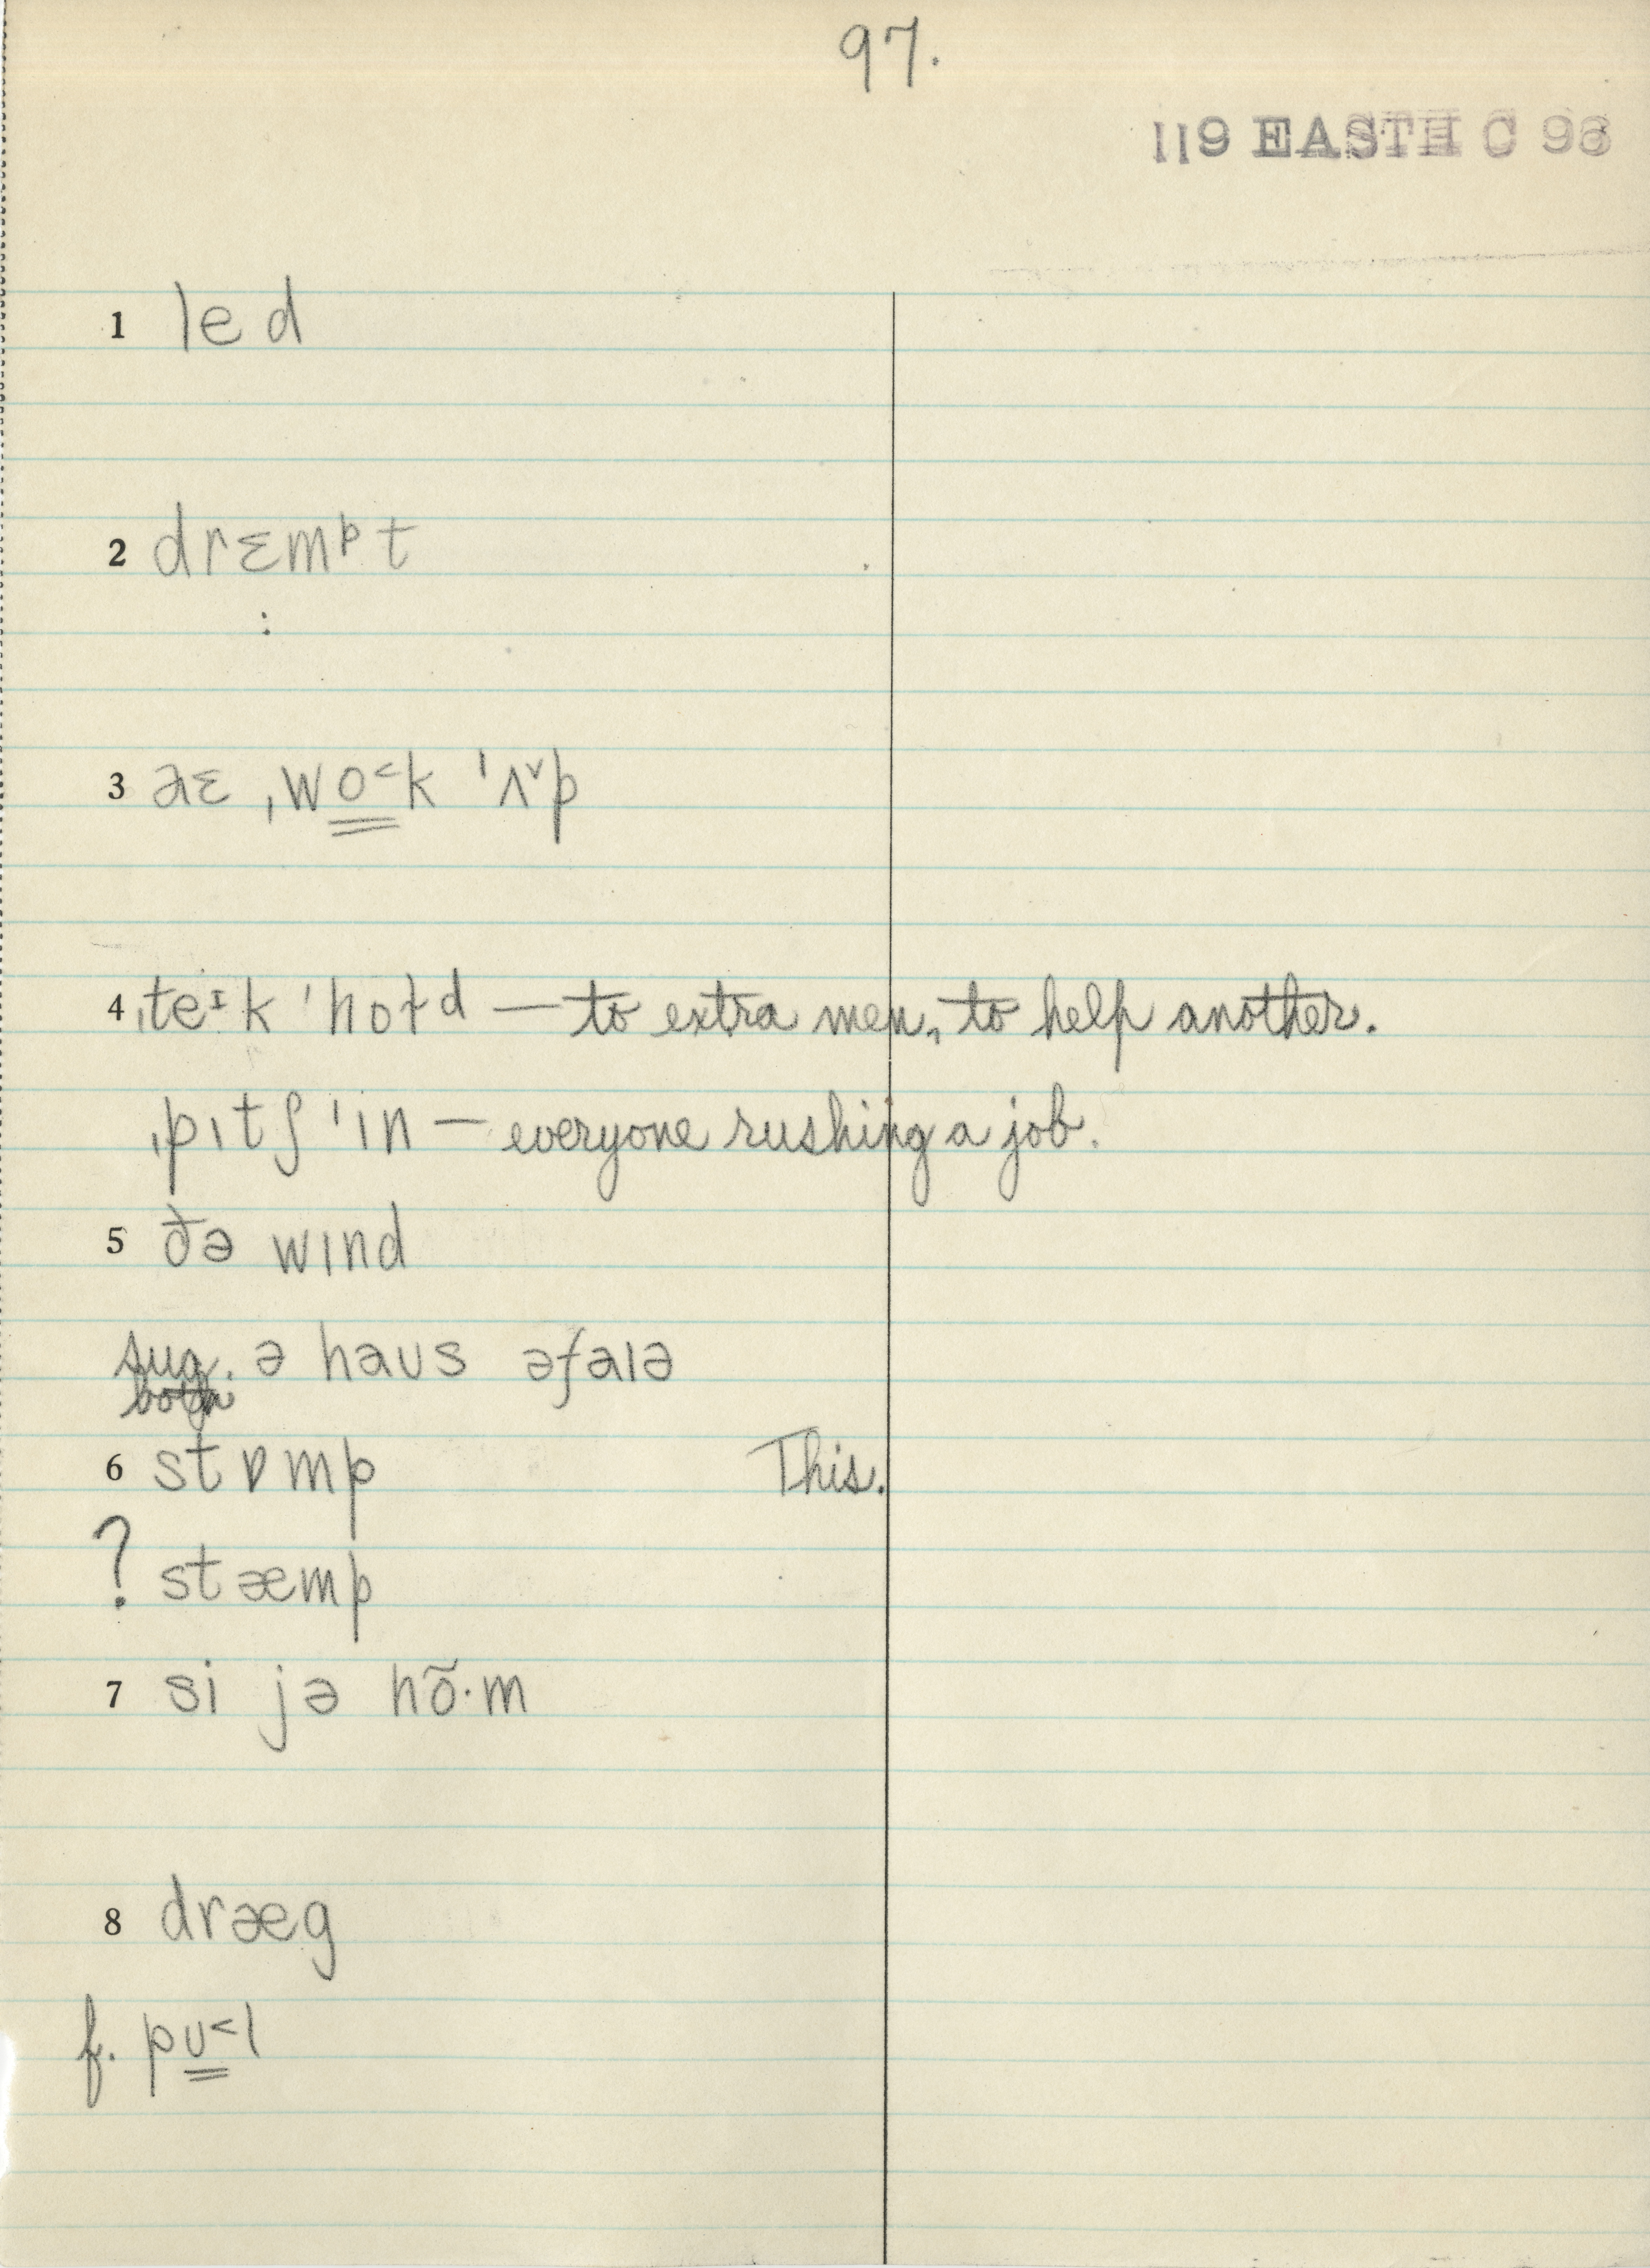 97.
119 EASTH C 96
1 led
2 drɛmᵖt
:
3 aɛ ˌwo̳˂k ˈʌ˅p
4 ˌteᶦk ˈhoɫᵈ — to extra men, to help another.
ˌpɪtʃ ˈin — everyone rushing a job.
5 ðə wɪnd
sug. ə haʊs əfaɪə
both
6 stɒmp This.
? stæmp
7 si jə hõ·m
8 dræg
f. pʊ̳˂l